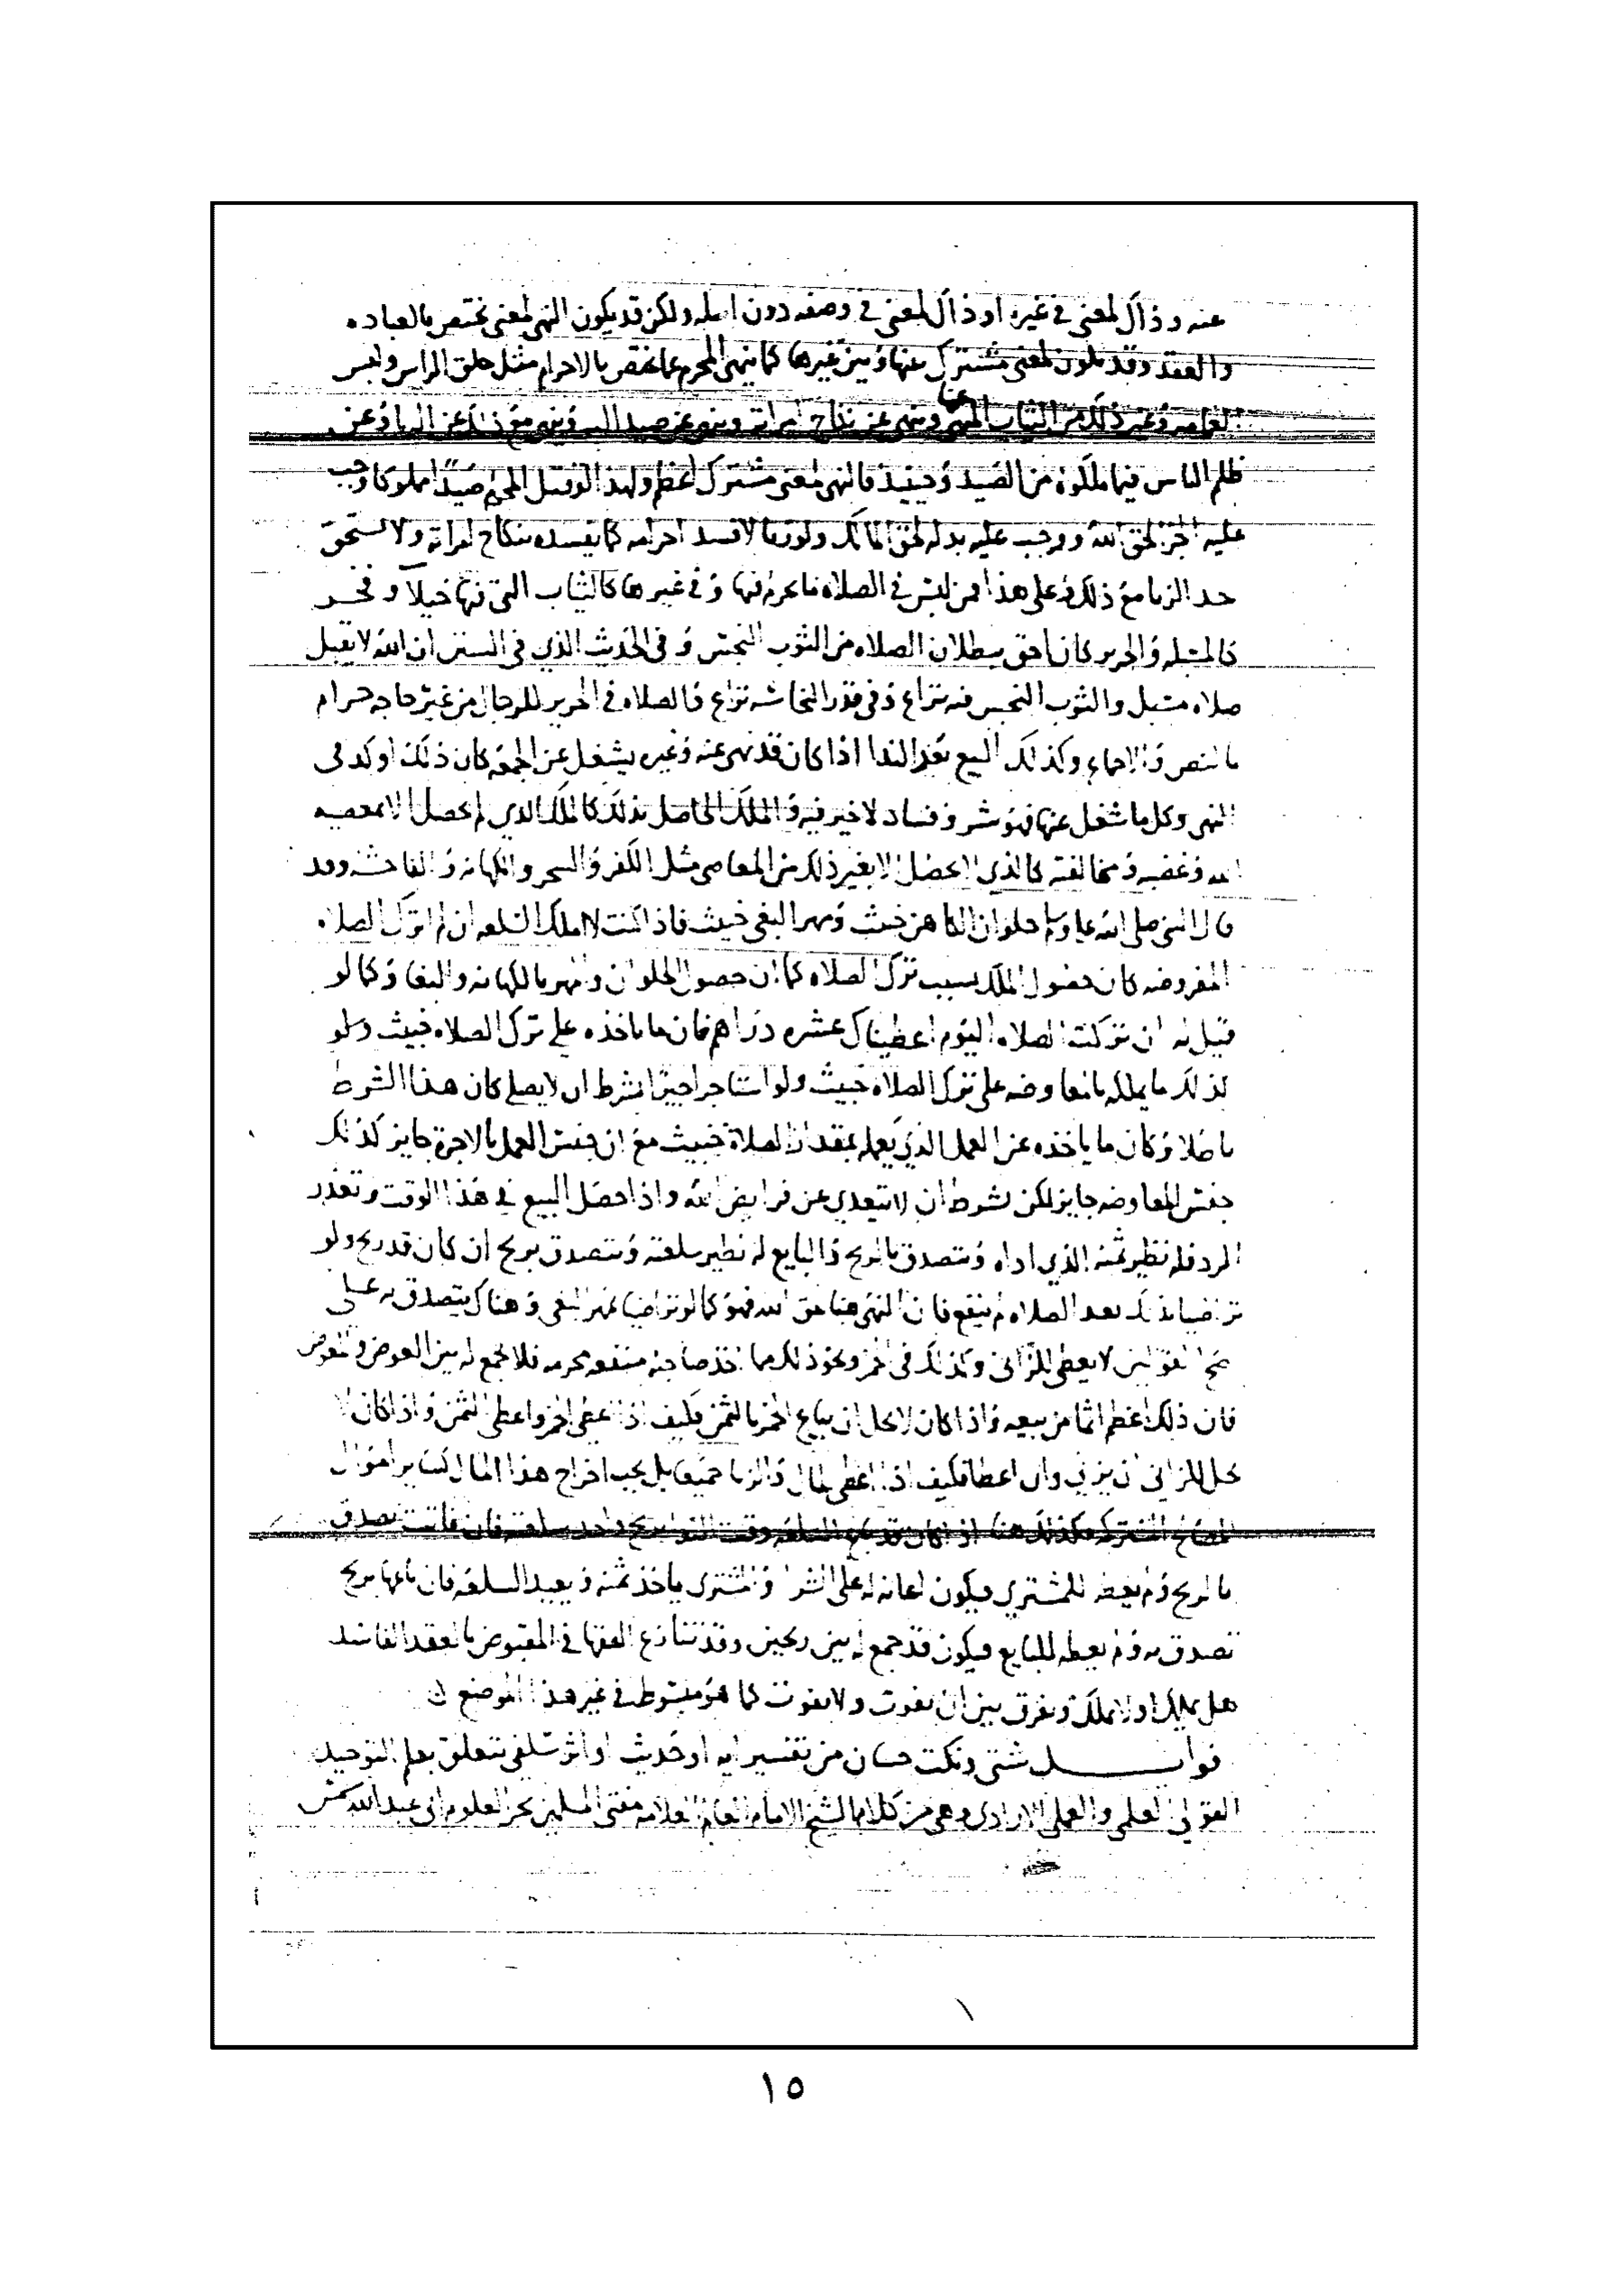 عنه وذاك لمعنى في غيره او ذاك لمعنى في وصفه دون اصله ولكن قد يكون النهي لمعنى يختص بالعباده
والعقد وقد يكون لمعنى مشترك بينها وبين غيرها كما ينهى المحرم عما يختص بالاحرام مثل حلق الراس ولبس
العمامه وغير ذلك من الثياب المنهي عنها وينهى عن نكاح امراته وينهى عن صيد البر وينهى مع ذلك عن الزنا وعن
ظلم الناس فيما ملكوه من الصيد وحينئذ فالنهي لمعنى مشترك اعظم ولهذا لو قتل المحرم صيدا مملوكا وجب
عليه الجزا لحق الله ووجب عليه بدله لحق المالك ولو زنا لافسد احرامه كما يفسده بنكاح امراته ولاستحق
حد الزنا مع ذلك وعلى هذا فمن لبس في الصلاه ما يحرم فيها وفي غيرها كالثياب التي فيها خيلا وفخر
كالمسبله والحرير كان احق ببطلان الصلاه من الثوب النجس وفي الحديث الذي في السنن ان الله لا يقبل
صلاه مسبل والثوب النجس فيه نزاع وفي قدر النجاسه نزاع والصلاه في الحرير للرجال من غير حاجه حرام
بالنص والاجماع وكذلك البيع بعد الندا اذا كان قد نهي عنه وغيره يشغل عن الجمعه كان ذلك اوكد في
النهي وكل ما شغل عنها فهو شر وفساد لا خير فيه والملك الحاصل بذلك كالملك الذي لم يحصل الا بمعصيه
الله وغضبه ومخالفته كالذي لا يحصل الا بغير ذلك من المعاصي مثل الكفر والسحر والكهانه والفاحشه وقد
قال النبي صلى الله عليه وسلم حلوان الكاهن خبيث ومهر البغي خبيث فاذا كنت لا املك السلعه ان لم اترك الصلاه
المفروضه كان حصول الملك بسبب ترك الصلاه كما ان حصول الحلوان والمهر بالكهانه والبغا وكما لو
قيل له ان تركت الصلاه اليوم اعطيناك عشره دراهم فان ما ياخذه على ترك الصلاه خبيث ولو
كذلك ما يملكه بالمعاوضه على ترك الصلاه خبيث ولو استاجر اجيرا بشرط ان لا يصلي كان هذا الشرط
باطلا وكان ما ياخذه عن العمل الذي يعمله بمقدار الصلاة خبيث مع ان جنس العمل بالاجرة جايز كذلك
جنس المعاوضه جايز لكن بشرط ان لا يتعدي عن فرايض الله واذا حصل البيع في هذا الوقت وتعذر
الرد فله نظير ثمنه الذي اداه ويتصدق بالربح والبايع له نظير سلعته ويتصدق بربح ان كان قد ربح ولو
تراضيا بذلك بعد الصلاه لم ينفع فان النهي هنا لحق الله فهو كما لو تراضيا بمهر البغي وهناك يتصدق به على
اصح القولين لا يعطى للزاني وكذلك في الخمر ونحو ذلك مما اخذ صاحبه منفعه محرمه فلا يجمع له بين العوض والمعوض
فان ذلك اعظم اثما من بيعه واذا كان لا يحل ان يباع الخمر بالثمن فكيف اذا اعطي الخمر واعطي الثمن واذا كان لا
يحل للزاني ان يزني وان اعطا فكيف اذا اعطي المال والزنا جميعا بل يجب اخراج هذا المال كساير اموال
المصالح المشتركه فكذلك هنا اذا كان قد باع السلعه وقت الندا بربح واخذ سلعته فان فاتت تصدق
بالربح ولم يعطه للمشتري فيكون اعانه له على الشرا والمشتري ياخذ ثمنه ويعيد السلعه فان باعها بربح
تصدق به ولم يعطه للبايع فيكون قد جمع له بين ربحين وقد تنازع الفقها في المقبوض بالعقد الفاسد
هل يملك او لا يملك ويفرق بين ان يفوت ولا يفوت كما هو مبسوط في غير هذا الموضع
فوايد شتى ونكت حسان من تفسير ايه او حديث او اثر سلفي تتعلق بعلم التوحيد
القولي العلمي والعملي الارادي وهي من كلام الشيخ الامام العالم العلامه مفتي المسلمين بحر العلوم ابي عبد الله شمس
١٥